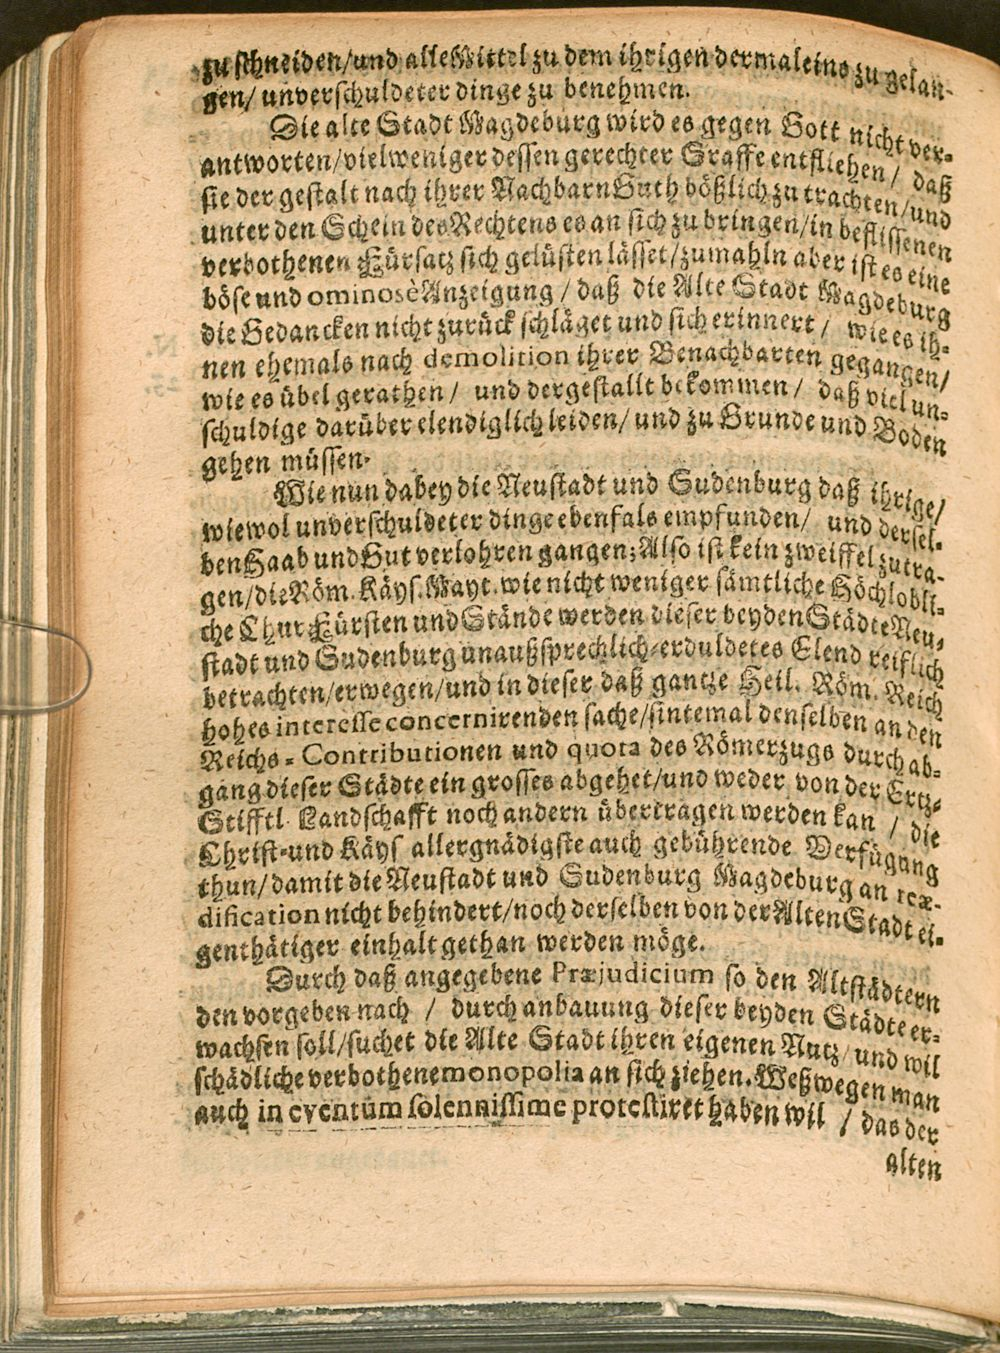 zu schneiden/und alle Mittel zu dem ihrigen dermaleins zu gelan-
gen/ unverschuldeter dinge zu benehmen.
Die alte Stadt Magdeburg wird es gegen Gott nicht ver-
antworten/vielweniger dessen gerechter Straffe entfliehen/ daß
sie der gestalt nach ihrer Nachbarn Guth bößlich zu trachten/und
unter den Schein des Rechtens es an sich zu bringen/in beflissenen
verbothenen Fürsatz sich gelüsten lässet/zumahln aber ist es eine
böse und ominosè Anzeigung / daß die Alte Stadt Magdeburg
die Gedancken nicht zurück schläget und sich erinnert / wie es ih-
nen ehemals nach demolition ihrer Benachbarten gegangen/
wie es übel gerathen / und dergestallt bekommen / daß viel un-
schuldige darüber elendiglich leiden/ und zu Grunde und Boden
gehen müssen.
Wie nun dabey die Neustadt und Sudenburg daß ihrige/
wiewol unverschuldeter dinge ebenfals empfunden/ und dersel-
ben Haab und Gut verlohren gangen; Also ist kein zweiffel zutra-
gen/die Röm. Käys. Mayt. wie nicht weniger sämtliche Höchlobli-
che Chur Fürsten und Stände werden dieser beyden Städte Neu-
stadt und Sudenburg unaußsprechlich-erduldetes Elend reiflich
betrachten/erwegen/und in dieser daß gantze Heil. Röm. Reich
hohes interesse concernirenden sache/sintemal denselben an den
Reichs-Contributionen und quota des Römerzugs durch ab-
gang dieser Städte ein grosses abgehet/und weder von der Ertz-
Stifftl. Landschafft noch andern übertragen werden kan / die
Christ-und Käys allergnädigste auch gebührende Verfügung
thun/damit die Neustadt und Sudenburg Magdeburg an reæ-
dification nicht behindert/noch derselben von der Alten Stadt ei-
genthätiger einhalt gethan werden möge.
Durch daß angegebene Præjudicium so den Altstädtern
den vorgeben nach / durch anbauung dieser beyden Städte er-
wachsen soll/suchet die Alte Stadt ihren eigenen Nutz/ und wil
schädliche verbothene monopolia an sich ziehen. Weßwegen man
auch in eventum solennissime protestiret haben wil / das der
alten